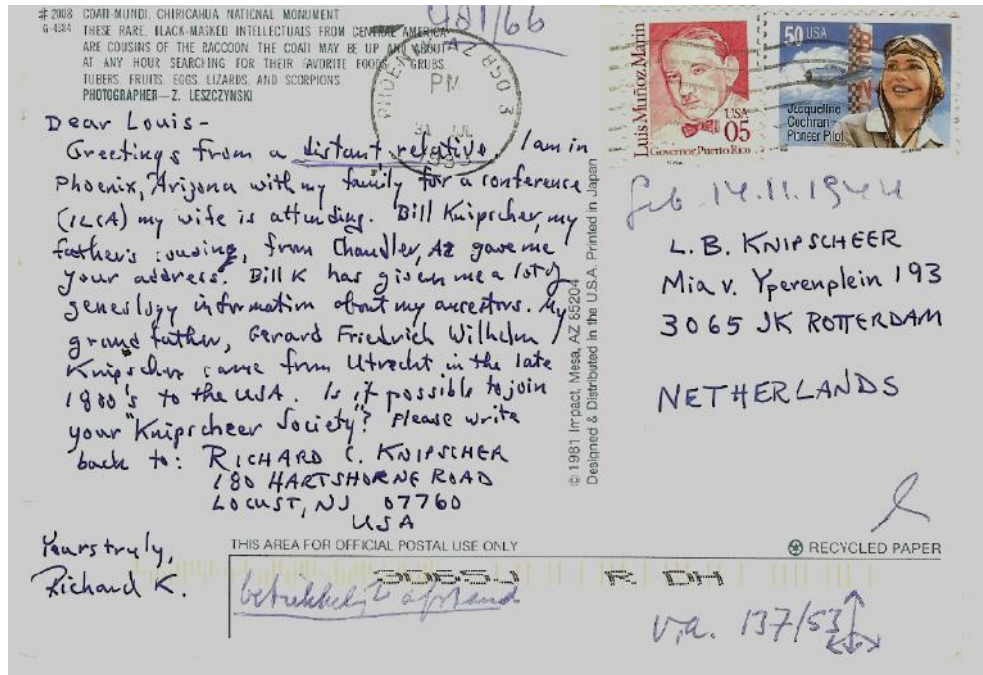 # 2008 COATI-MUNDI, CHIRICAHUA NATIONAL MONUMENT
G-4584 THESE RARE, BLACK-MASKED INTELLECTUALS FROM CENTRAL AMERICA
ARE COUSINS OF THE RACCOON. THE COATI MAY BE UP AND ABOUT
AT ANY HOUR SEARCHING FOR THEIR FAVORITE FOODS GRUBS,
TUBERS, FRUITS, EGGS, LIZARDS, AND SCORPIONS.
PHOTOGRAPHER—Z. LESZCZYNSKI
401/66
PHOENIX AZ 850 3
PM
Dear Louis-
Greetings from a distant relative. I am in
Phoenix, Arizona with my family for a conference
(ILCA) my wife is attending. Bill Knipscher, my
father's cousing, from Chandler, AZ gave me
your address. Bill K has given me a lot of
geneology information about my ancestors. My
grand father, Gerard Friedrich Wilhelm
Knipscher came from Utrecht in the late
1800's to the USA. Is it possible to join
your "Knipscheer Society"? Please write
back to: RICHARD C. KNIPSCHER
180 HARTSHORNE ROAD
LOCUST, NJ 07760
USA
Yours truly,
Richard K.
© 1981 Impact, Mesa, AZ 85204
Designed & Distributed in the U.S.A. Printed in Japan
Luis Muñoz Marín
USA
05
Governor, Puerto Rico
50 USA
Jacqueline
Cochran
Pioneer Pilot
geb. 14.11.1944
L. B. KNIPSCHEER
Mia v. Yperenplein 193
3065 JK ROTTERDAM
NETHERLANDS
THIS AREA FOR OFFICIAL POSTAL USE ONLY
RECYCLED PAPER
3065J R DH
afstand
via 137/53